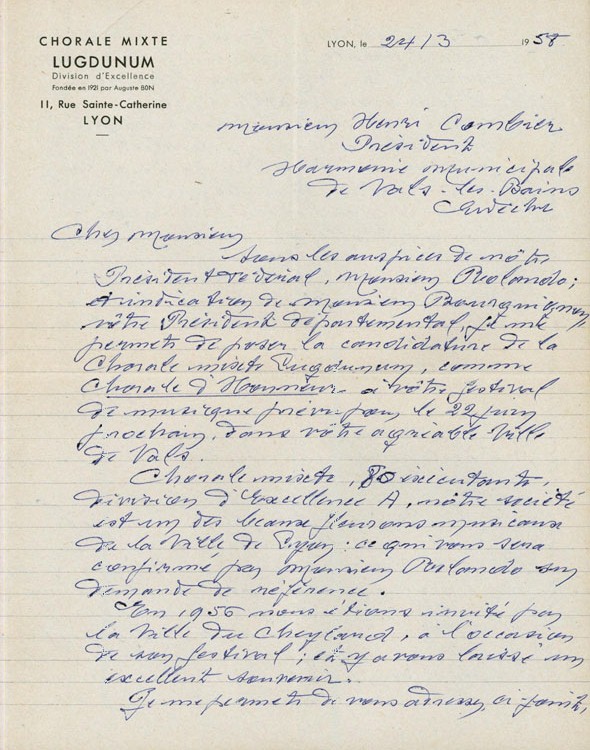 CHORALE MIXTE
LUGDUNUM
Division d'Excellence
Fondée en 1921 par Auguste BON
11, Rue Sainte-Catherine
LYON
LYON, le 24/3 1958
Monsieur Henri Combier
Président
Harmonie municipale
de Vals-les-Bains
Ardèche
Cher Monsieur
sous les auspices de nôtre
Président Fédéral, Monsieur Rolando;
et indication de Monsieur Bourguignon,
vôtre Président départemental, je me
permets de poser la candidature de la
Chorale mixte Lugdunum, comme
Chorale d'Honneur à vôtre festival
de musique prévu pour le 22 juin
prochain, dans vôtre agréable Ville
de Vals.
Chorale mixte, 80 exécutants,
division d'Excellence A, nôtre société
est un des beaux fleurons musicaux
de la Ville de Lyon: ce qui vous sera
confirmé par Monsieur Rolando sur
demande de référence.
En 1956 nous étions invité par
la Ville du Cheylard, à l'occasion
de son festival; et y avons laissé un
excellent souvenir.
Je me permets de vous adresser, ci-joint,